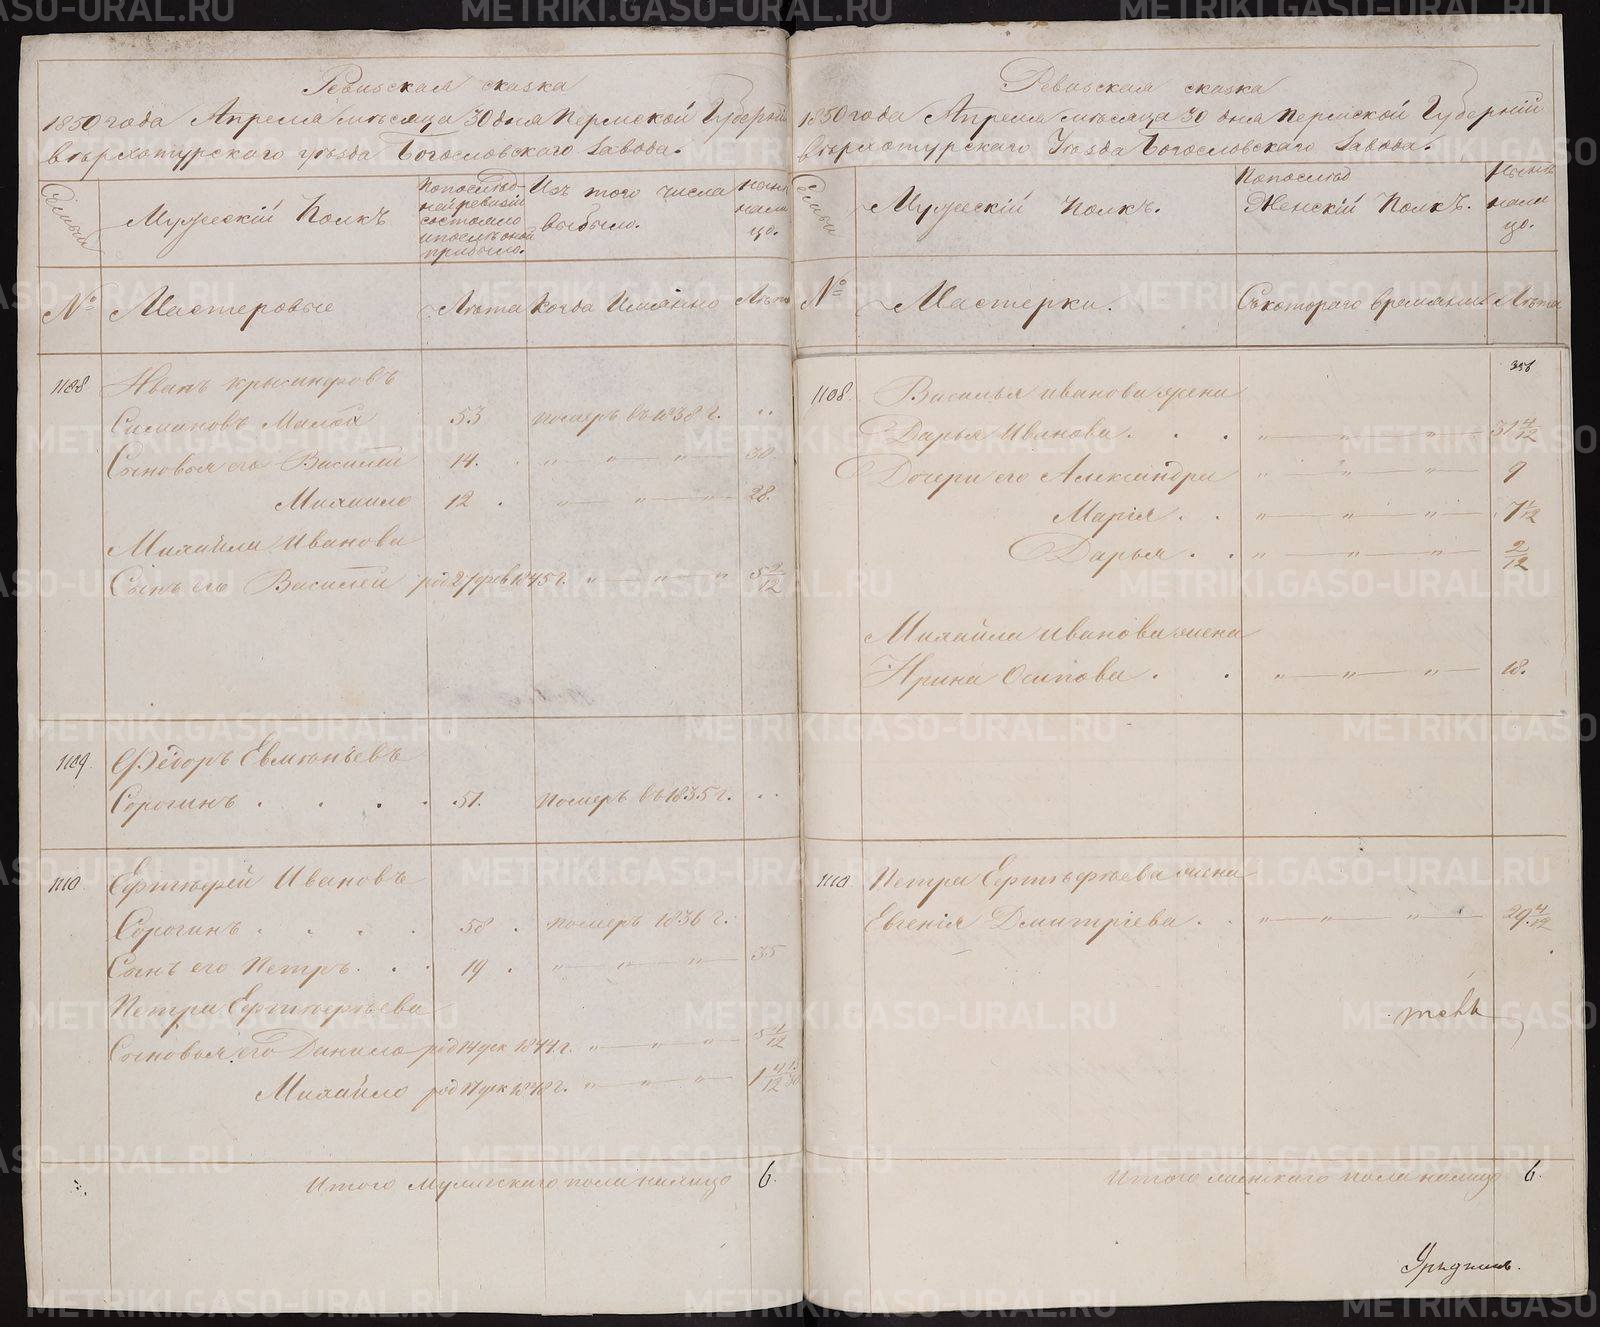 Ревизская сказка
1850 года Апреля месяца 30 дня Пермской Губерніи
верхотурского уезда Богословского Завода.
Семьи
Мужескій Полкъ
Попослед-
ней ревизіи
состояло
и после оной
прибыло.
Изъ того числа
выбыло.
Ныне
нали
цо.
№
Мастеровые
Лѣта
Когда Имянно
Лѣта
1108
Иванъ
Симановъ Малой
53
померъ въ 1838 г.
Сыновья его Василей
14.
30
Михайло
12
28.
Михайла Иванова
Сынъ его Василей
род 27 фев 1845 г.
5 2/12
1109
Федоръ Евменьевъ
Сорогинъ
51.
померъ въ 1835 г.
1110
Ерофей Ивановъ
Сорогинъ
58
померъ 1836 г.
Сынъ его Петръ
19
35
Петра
Сыновья его Данило
род 14 дек 1844 г.
5 4/12
Михайло
род 17 дек 1848 г.
1 4/12
Итого Мужескаго пола налицо
6.
Ревизская сказка
1850 года Апреля месяца 30 дня Пермской Губерніи
верхотурского Уезда Богословского Завода.
Семьи
Мужескій Полкъ.
Попослед
Женскій Полкъ.
Ныне
нали
цо.
№
Мастерки.
Съкотораго времянии
Лѣта
356
1108
Василья иванова жена
Дарья Иванова
31 4/12
Дочери его Александра
9
Марія
7 1/12
Дарья
2/12
Михайла иванова жена
Ирина Осипова
18.
1110
Петра жена
Евгенія Дмитріева
29. 4/12
Итого женскаго пола налицо
6.
METRIKI.GASO-URAL.RU